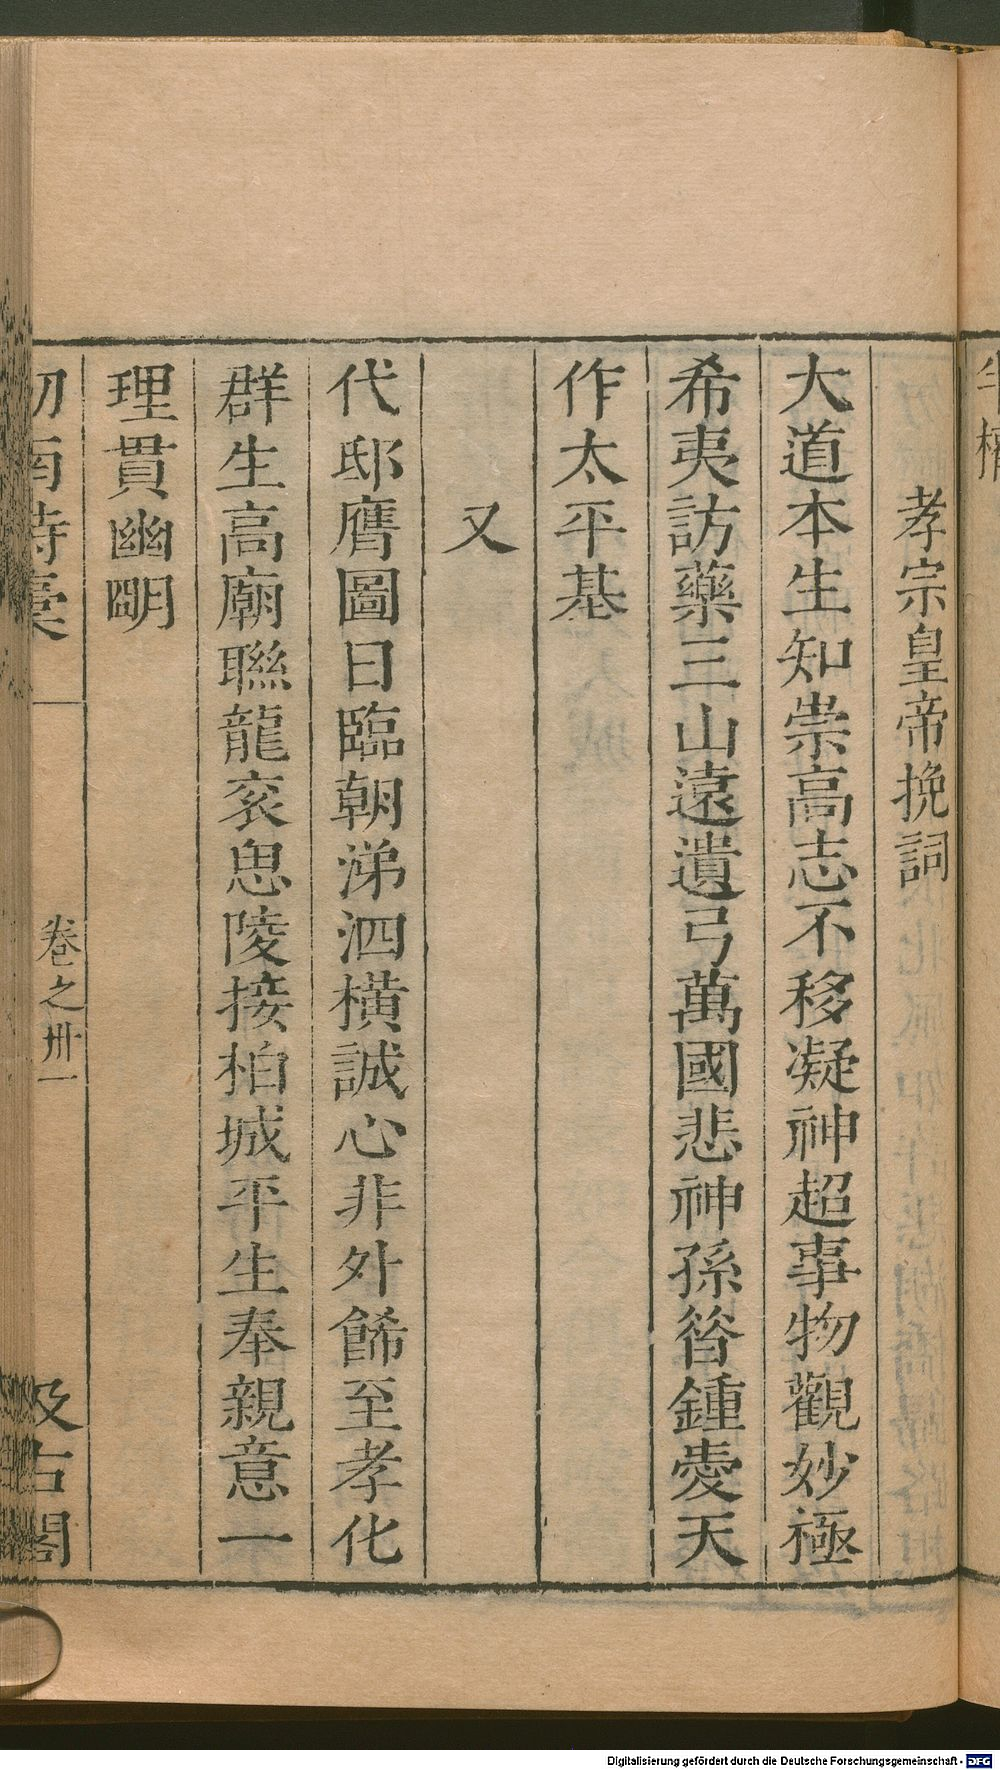 孝宗皇帝挽詞
大道本生知崇高志不移凝神超事物觀妙極
希夷訪藥三山遠遺弓萬國悲神孫昝鍾愛天
作太平基
又
代邸膺圖日臨朝涕泗橫誠心非外餙至孝化
群生高廟聯龍衮思陵接柏城平生奉親意一
理貫幽明
南詩稾 卷之卅一 汲古閣
Digitalisierung gefördert durch die Deutsche Forschungsgemeinschaft - DFG